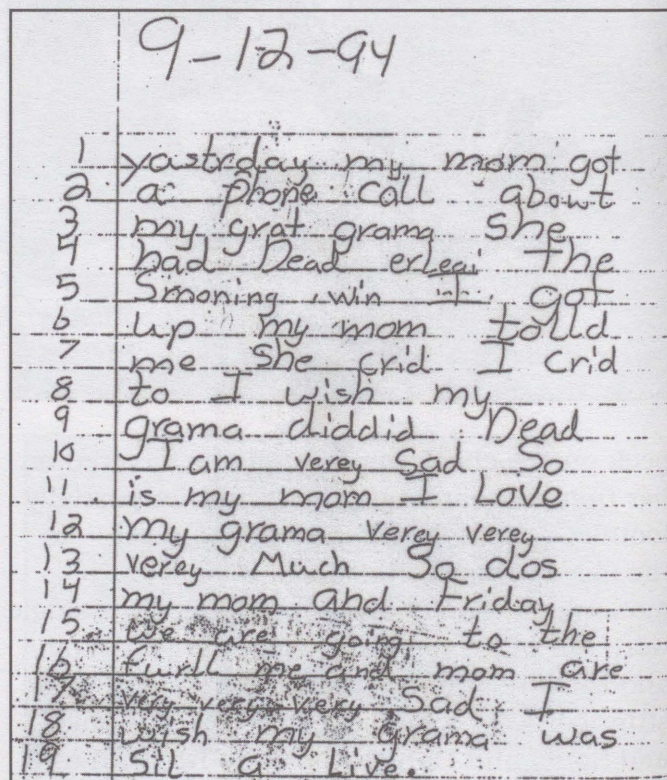 9-12-94
1 yastrday my mom got
2 a phone call abowt
3 my grat grama she
4 had Dead erleai the
5 Smoning win I got
6 up my mom tolld
7 me she crid I crid
8 to I wish my
9 grama diddid Dead
10 I am verey Sad So
11 is my mom I Love
12 my grama verey verey
13 verey Much So dos
14 my mom and Friday
15 we are going to the
16 furll me and mom are
17 very very very Sad I
18 wish my grama was
19 Sil a Live.